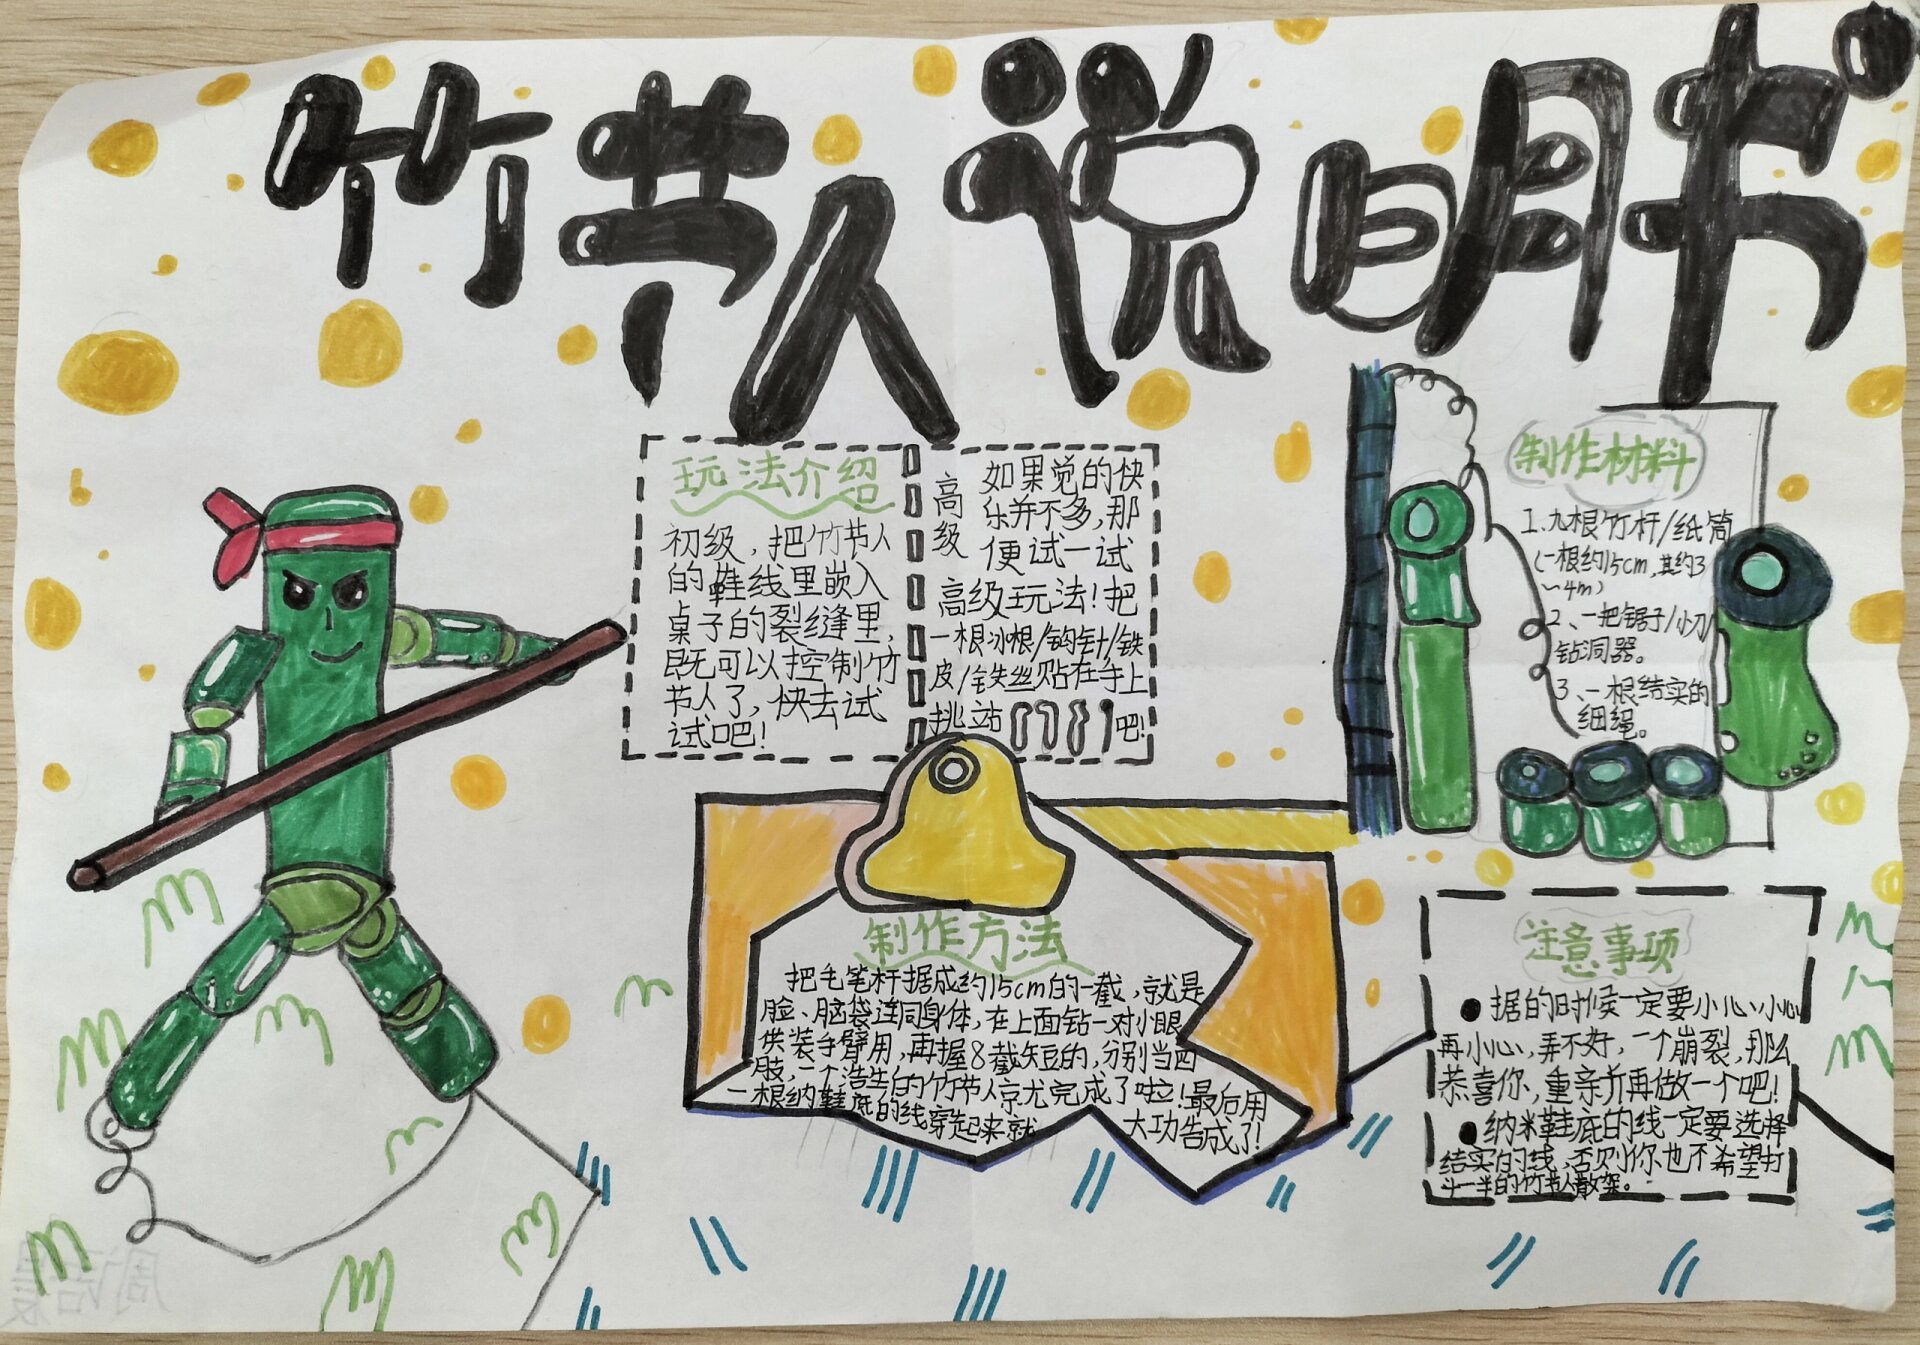 竹节人说明书
玩法介绍
初级，把竹节人
的鞋线里嵌入
桌子的裂缝里，
既可以控制竹
节人了，快去试
试吧！
高级
如果觉的快
乐并不多，那
便试一试
高级玩法！把
一根冰根/钩针/铁
皮/铁丝贴在手上
挑站吧！
制作材料
1、九根竹杆/纸筒
(一根约15cm，其约3
~4m)
2、一把锯子/小刀/
钻洞器。
3、一根结实的
细绳。
制作方法
把毛笔杆据成约15cm的一截，就是
脸、脑袋连同身体，在上面钻一对小眼
供装手臂用，再握8截矢豆的，分别当四
肢，一个浩生白的竹节人京尤完成了啦！最后用
一根纳鞋底的线穿起来就
大功告成了！
注意事项
●据的时候一定要小心、小心
再小心，弄不好，一个崩裂，那么
恭喜你，重亲并再做一个吧！
●纳米鞋底的线一定要选择
结实的线，否则你也不希望打
斗一半的竹节人散架。